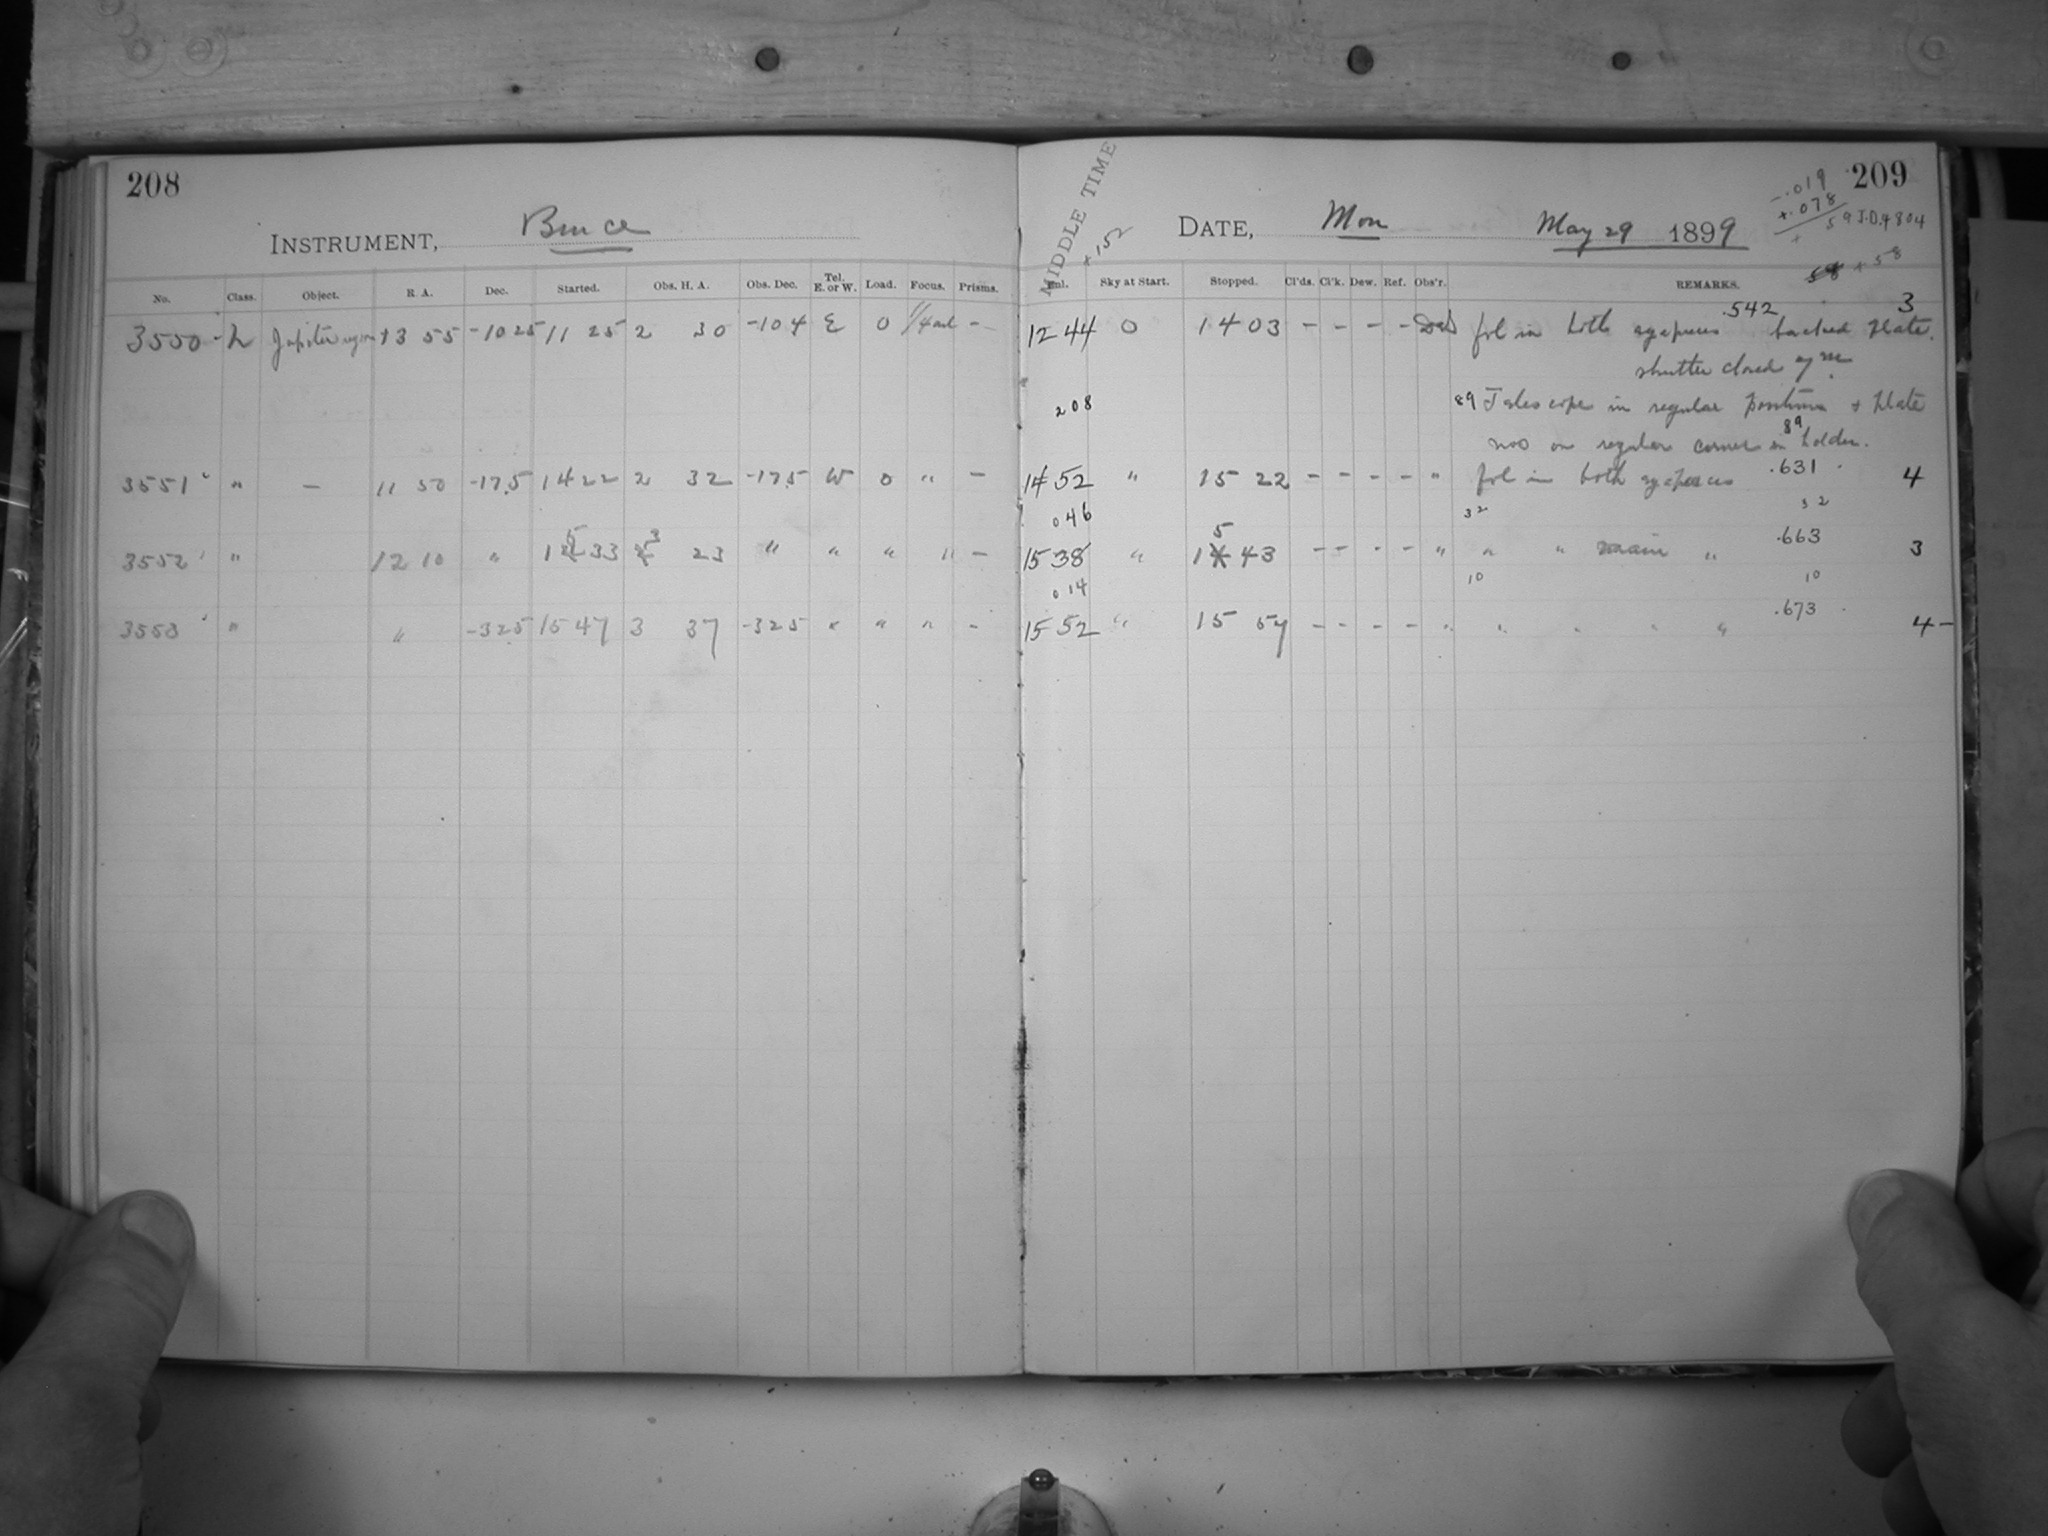 208
INSTRUMENT, Bruce
No. Class. Object. R. A. Dec. Started. Obs. H. A. Obs. Dec. Tel. E. or W. Load. Focus. Prisms.
3550 L Jupiter region 13 55 -10 25 11 25 2 30 -10 4 E 0 -
3551 " - 11 50 -17.5 14 22 2 32 -17.5 W 0 " -
3552 " 12 10 " 15 33 3 23 " " " " -
3553 " " -32.5 15 47 3 37 -32.5 " " " -
MIDDLE TIME
+.152
209
DATE, Mon May 29 1899
-.019
+.078
+ 59 J.D. 4804
58 +58
Sky at Start. Stopped. Cl'ds. Cl'k. Dew. Ref. Obs'r. REMARKS.
12 44 0 14 03 - - - - fol in both backed plate. .542 3
shutter closed 7m
208 89 Telescope in regular position + plate
nos on regular corner in holder. 89
14 52 " 15 22 - - - - " fol in both .631 4
046 32 32
15 38 " 15 43 - - - - " " " main " .663 3
014 10 10
15 52 " 15 57 - - - - " " " " " .673 4-